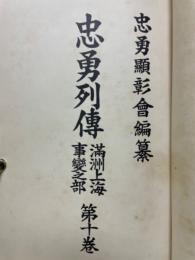 忠勇顯彰會編纂
忠勇列傳
滿洲上海
事變之部
第十卷